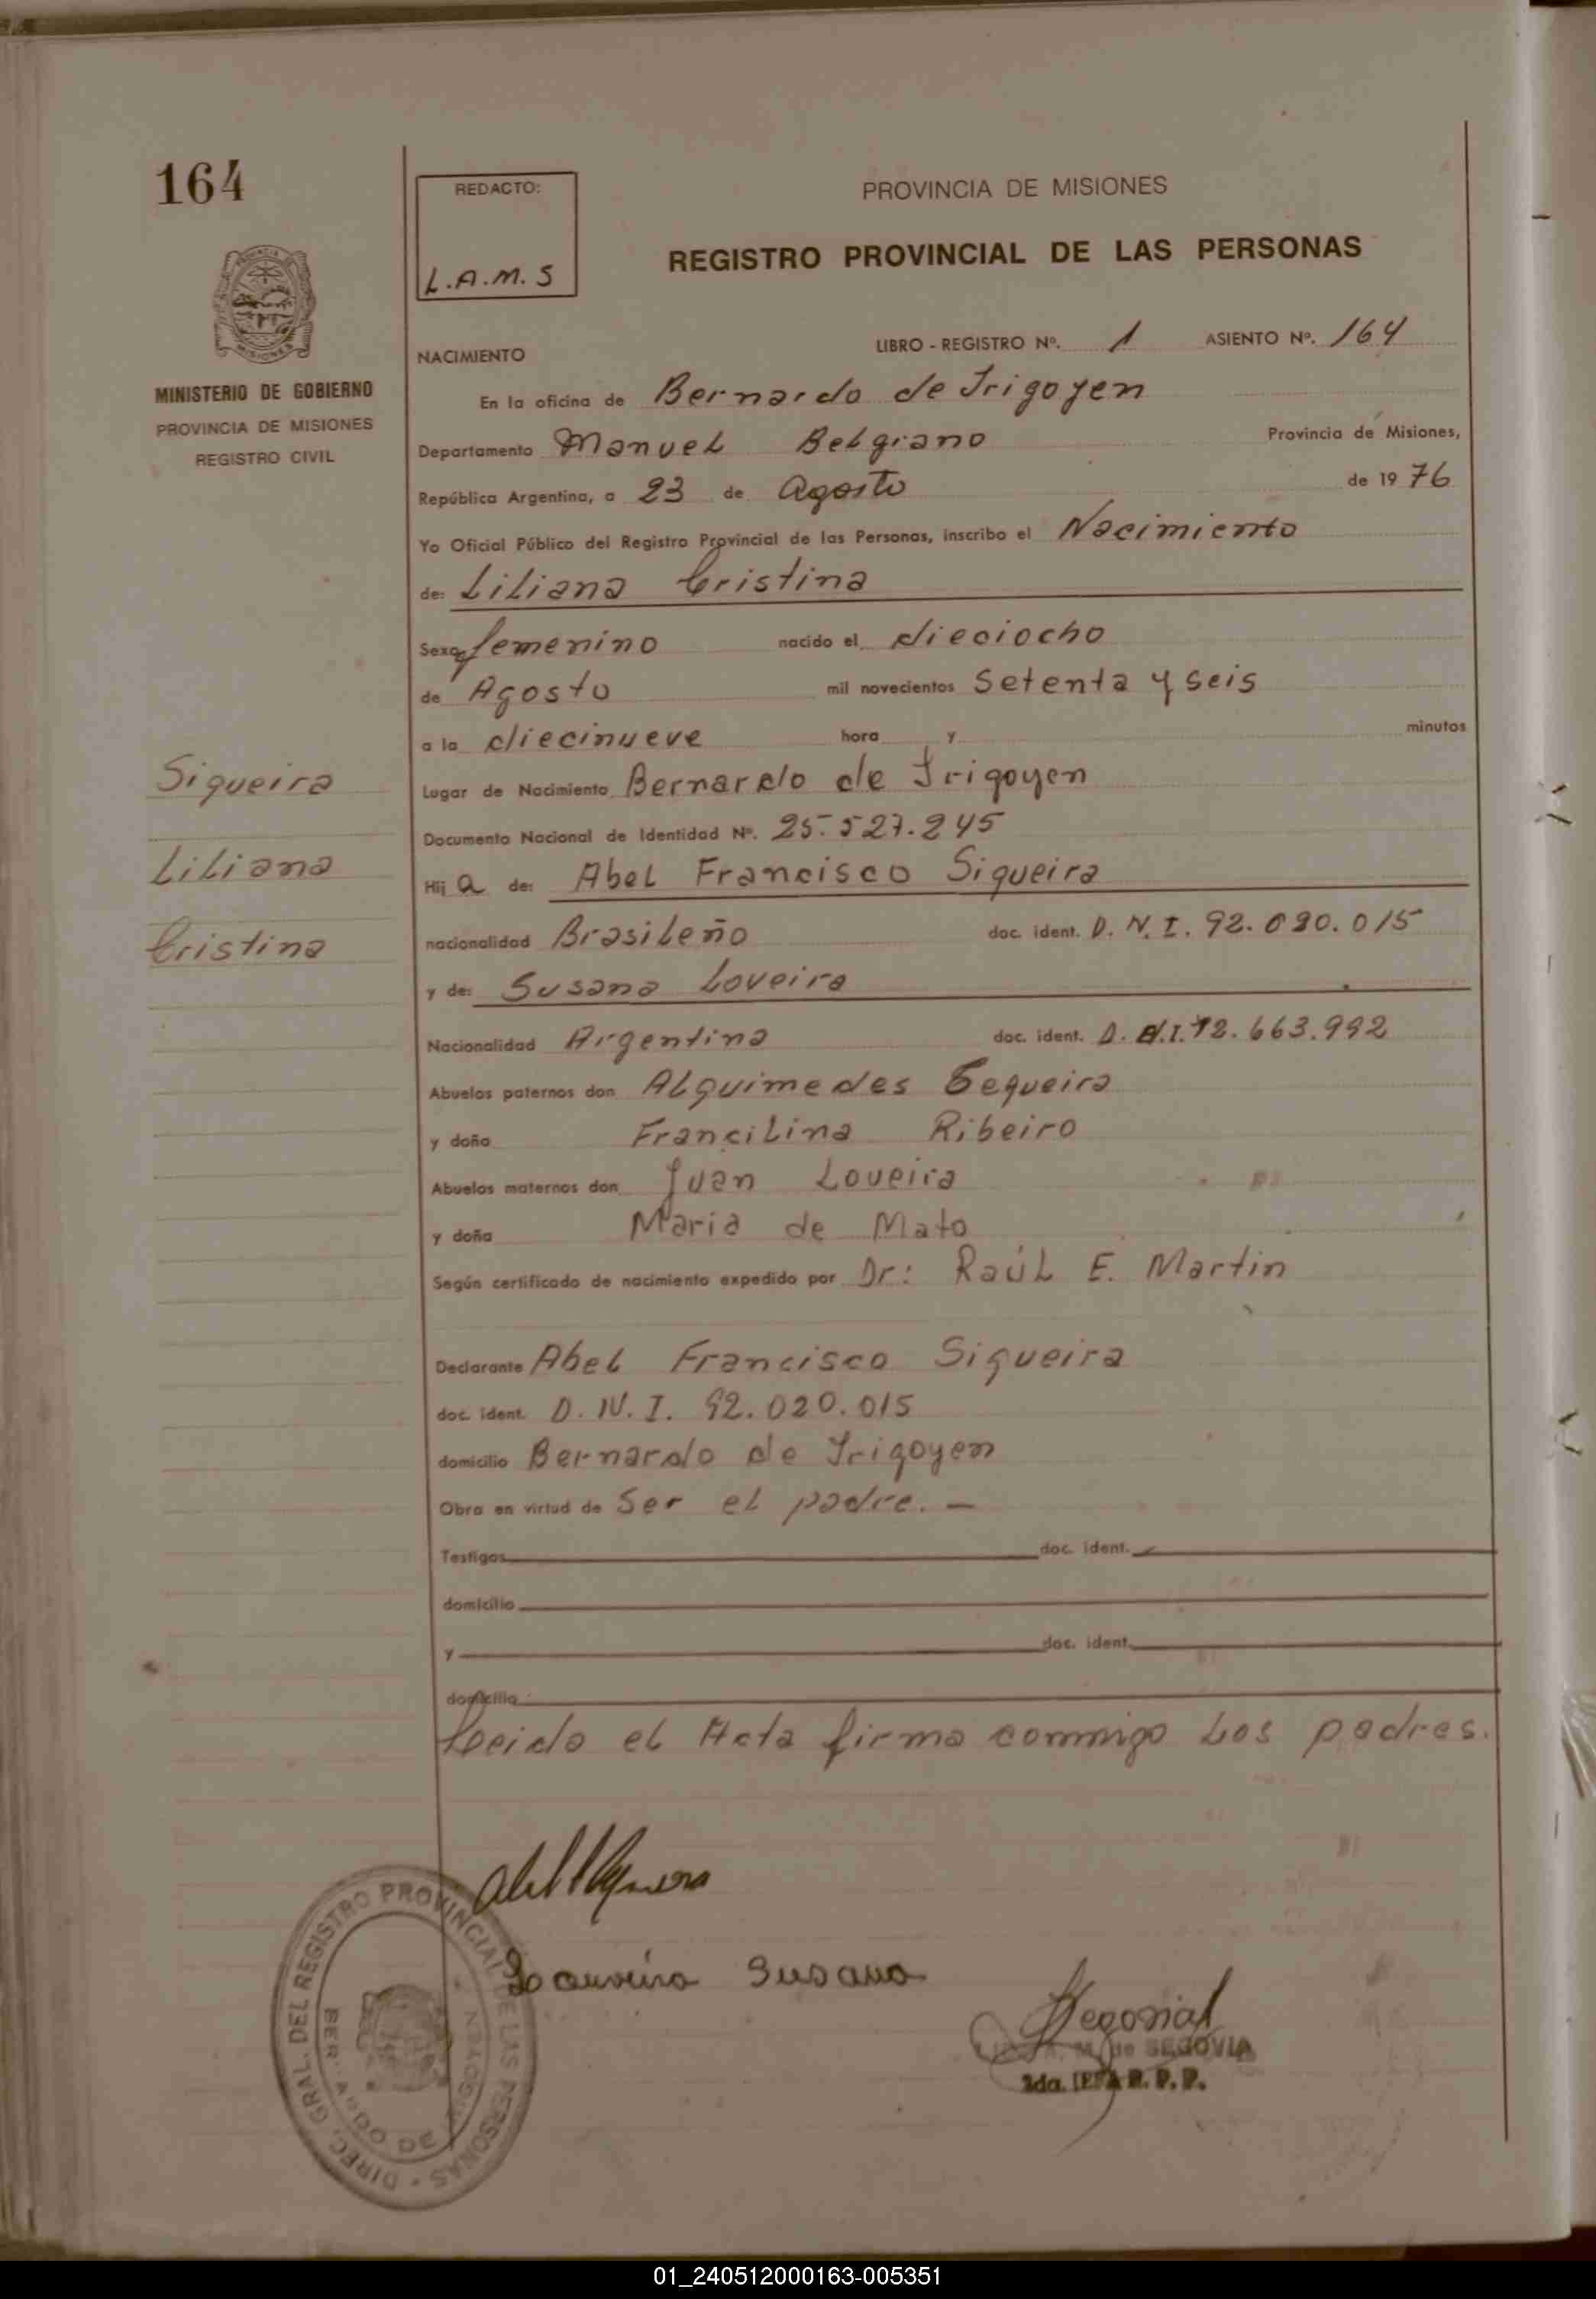 164
REDACTO:
L.A.M.S
PROVINCIA DE MISIONES
REGISTRO PROVINCIAL DE LAS PERSONAS
MISIONES
MINISTERIO DE GOBIERNO
PROVINCIA DE MISIONES
REGISTRO CIVIL
NACIMIENTO
LIBRO - REGISTRO Nº. 1 ASIENTO Nº. 164
En la oficina de Bernardo de Irigoyen
Departamento Manuel Belgrano Provincia de Misiones,
República Argentina, a 23 de Agosto de 1976
Yo Oficial Público del Registro Provincial de las Personas, inscribo el Nacimiento
de: Liliana Cristina
Sexo femenino nacido el dieciocho
de Agosto mil novecientos Setenta y seis
a la diecinueve hora y minutos
Siqueira
Lugar de Nacimiento Bernardo de Irigoyen
Documento Nacional de Identidad Nº. 25.527.245
Liliana
Hij a de: Abel Francisco Siqueira
nacionalidad Brasileño doc. ident. D.N.I. 92.020.015
Cristina
y de: Susana Loveira
Nacionalidad Argentina doc. ident. D.N.I. 12.663.992
Abuelos paternos don Alquimedes Sequeira
y doña Francilina Ribeiro
Abuelos maternos don Juan Loveira
y doña Maria de Mato
Según certificado de nacimiento expedido por Dr: Raúl E. Martin
Declarante Abel Francisco Siqueira
doc. ident. D.N.I. 92.020.015
domicilio Bernardo de Irigoyen
Obra en virtud de Ser el padre. —
Testigos doc. ident.
domicilio
y doc. ident.
domicilio
Leida el Acta firma conmigo Los padres.
DIREC. GRAL. DEL REGISTRO PROVINCIAL DE LAS PERSONAS
Loureira Susana
M. de SEGOVIA
2da. JEFA R. P. P.
01_240512000163-005351